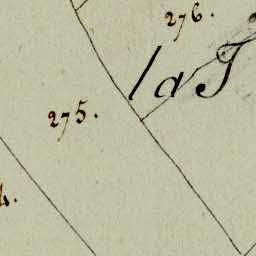 276.
la T
275.